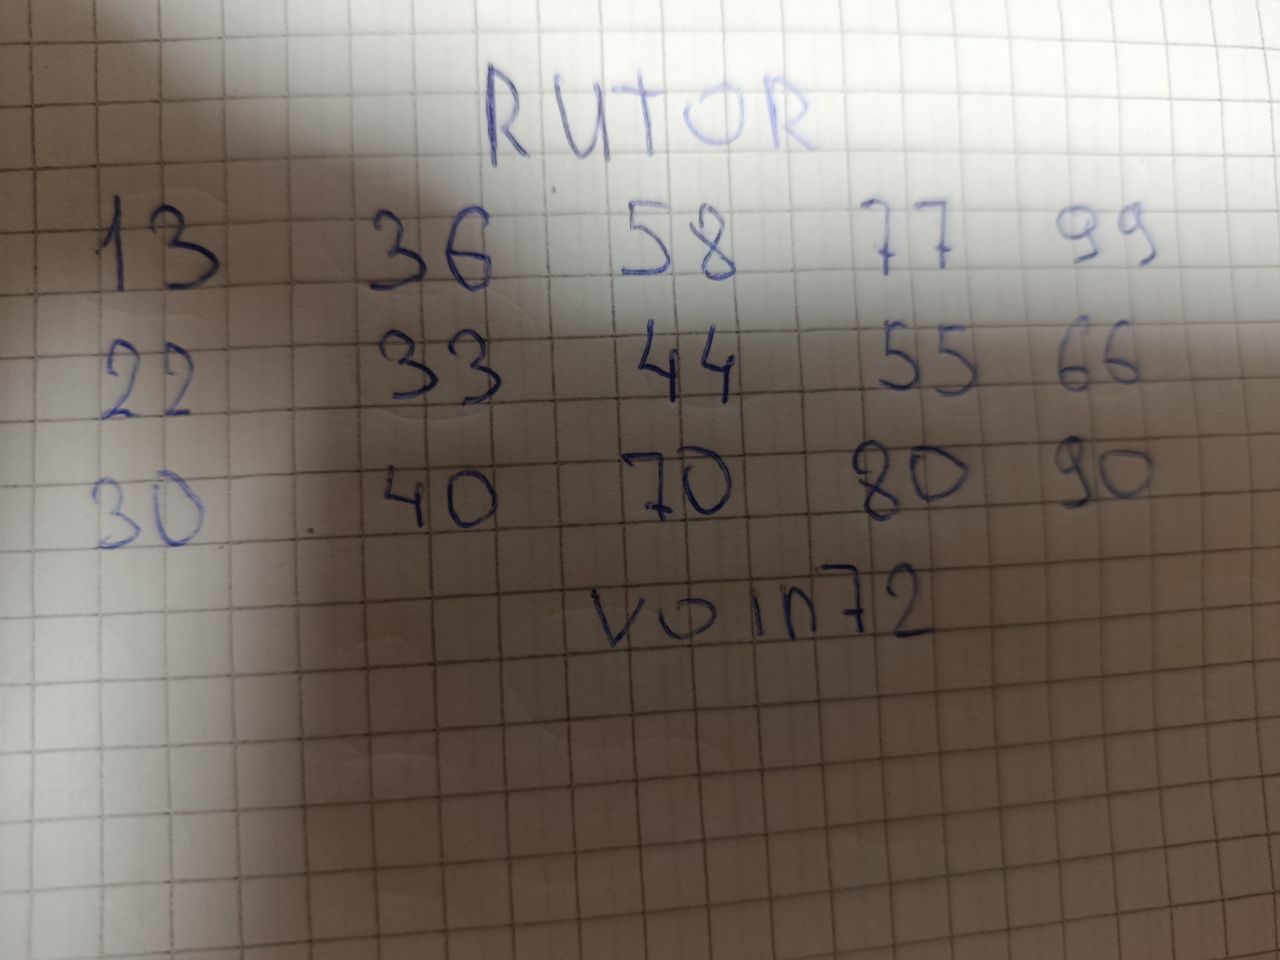 RUTOR
13 36 58 77 99
22 33 44 55 66
30 40 70 80 90
voin72